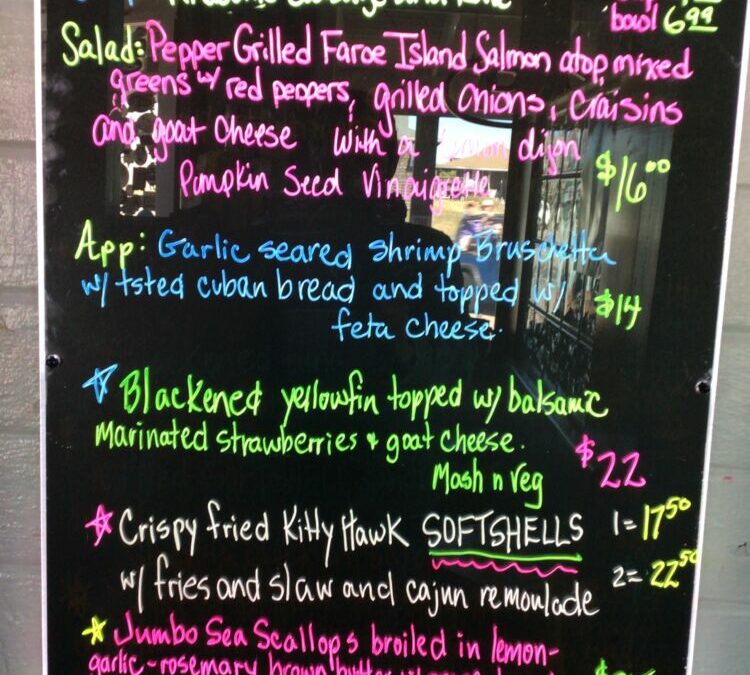 bowl 6.99
Salad: Pepper Grilled Faroe Island Salmon atop mixed
greens w/ red peppers, grilled onions, craisins
and goat cheese with a lemon dijon
Pumpkin Seed Vinaigrette $16.00
App: Garlic seared shrimp Bruschetta
w/ tsted cuban bread and topped w/ $14
feta cheese.
☆ Blackened yellowfin topped w/ balsamic
marinated strawberries + goat cheese. $22
Mash n veg
☆ Crispy fried Kitty Hawk SOFTSHELLS 1=17.50
w/ fries and slaw and cajun remoulade 2=22.50
☆ Jumbo Sea Scallops broiled in lemon-
garlic-rosemary brown butter